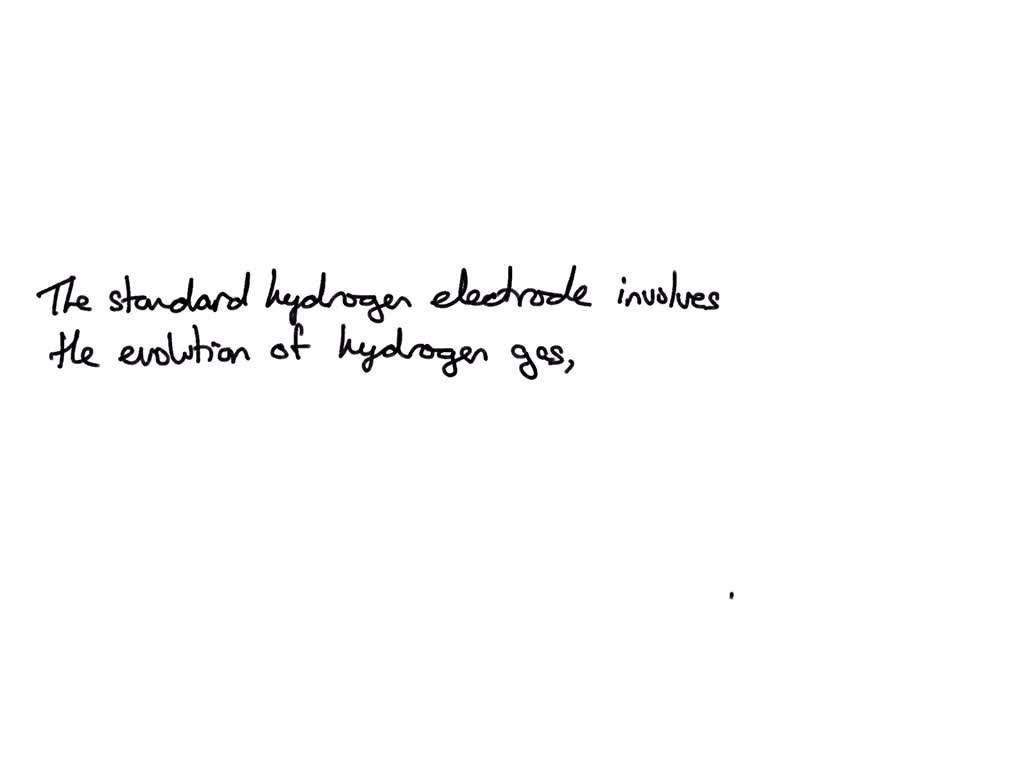 The standard hydrogen electrode involves
the evolution of hydrogen gas,